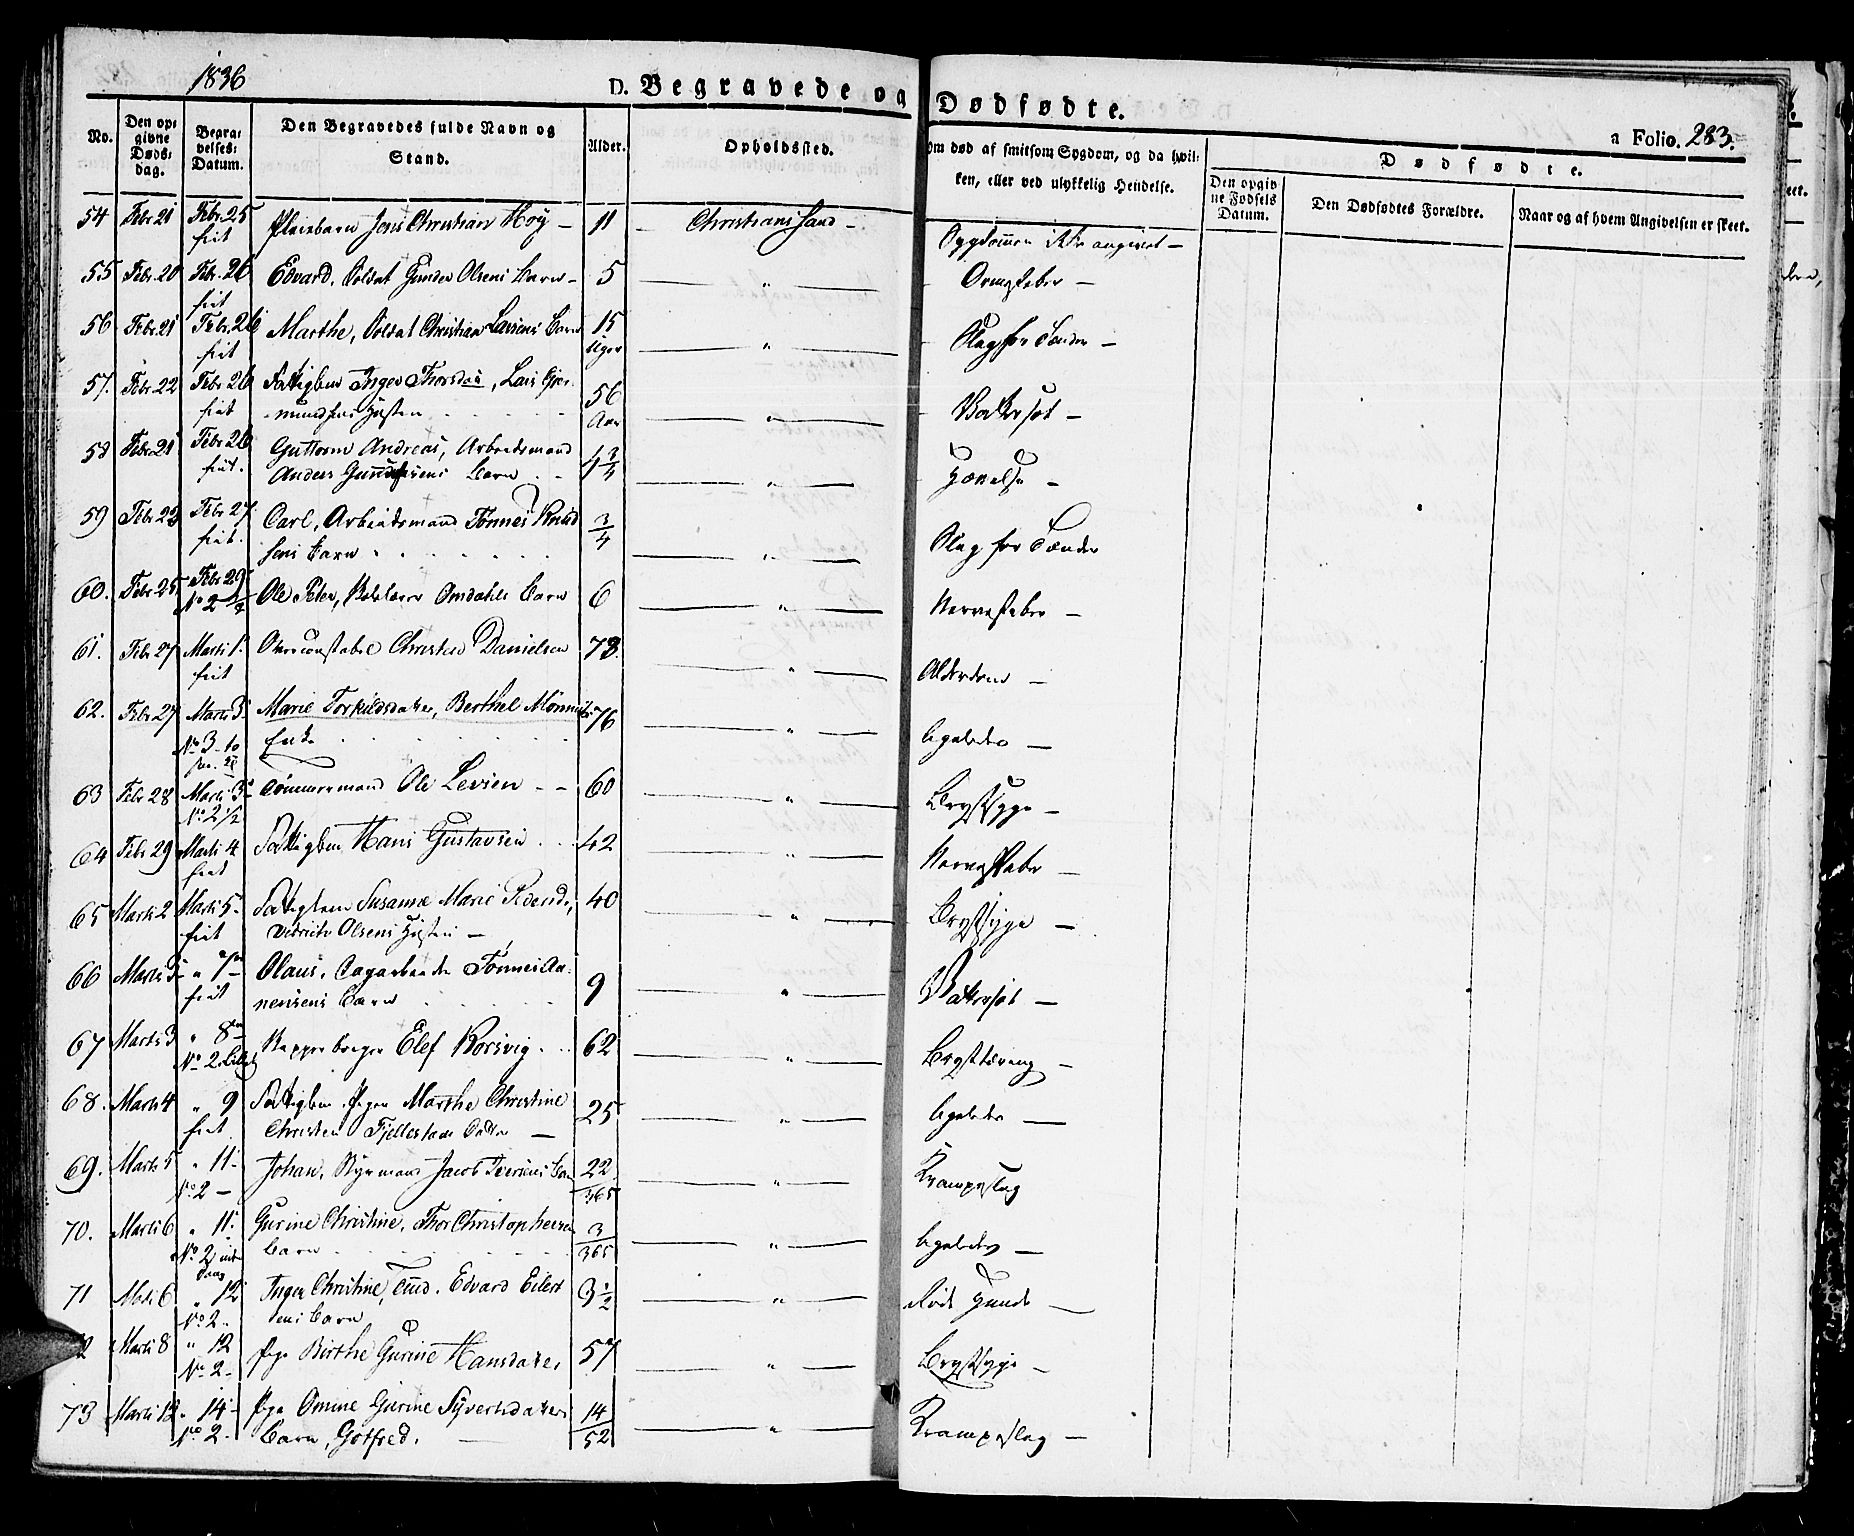 1836
D. Begravede og Dødfødte.
a Folio. 283.
No. | Den opgivne Dødsdag. | Begravelses Datum. | Den Begravedes fulde Navn og Stand. | Alder. | Opholdssted. | om død af smitsom Sygdom, og da hvilken, eller ved ulykkelig Hendelse. | Dødfødte.
Den opgivne Fødsels Datum. | Den Dødfødtes Forældre. | Naar og af hvem Angivelsen er skeet.
54 Febr 21 Febr. 25 fiit Pleiebarn Jens Christian Höy — 11 Christianssand — Sygdommen ikke angivet —
55 Febr. 20 Febr. 26 fiit Edvard, Soldat Gunder Olsens Barn — 5 — " — Ormefeber —
56 Febr. 21 Febr. 26 fiit Marthe, Soldat Christian Larsens Barn 15 Uger — " — Slag for Tænder —
57. Febr. 22 Febr 26 fiit Fattiglem Inger Thorsdat, Lars Gjer-
mundsens Hustru 56 Aar — " — Vattersot —
58 Febr. 21 Febr 26 fiit. Guttorm Andreas, Arbeidsmand
Anders Gundersens Barn 4 3/4 — " — Hævelse —
59 Febr 23 Febr. 27 fiit. Carl, Arbeidsmand Tönnes Knud
sens Barn 3/4 — " — Slag for Tænder
60. Febr 25 Febr 29 No 2 1/2 Ole Peter, Omdahls Barn 6 — " — Nervefeber —
61. Febr 27 Marts 1. fiit Overconstabel Christen Danielsen 73. — " — Alderdom —
62. Febr 27 Marts 3. No 3 Marie Torkildsdatter, Berthel
Enke 76 — " — ligeledes —
63 Febr 28 Marts 3 No 2 1/2 Tömmermand Ole Levsen — — 60 — " — Brystsyge —
64 Febr 29 Marts 4 fiit Fattiglem Hans Gustavsen 42 — " — Nervefeber —
65 Marts 2 Marts 5. fiit Fattiglem Susanne Marie
Olsens Hustru — 40 — " — Brystsyge —
66 Marts 3 " 7 fiit Olaus, Dagarbeider Tönnes Aa-
nensens Barn 9 — " — Vattersot —
67 Marts 3 " 8 No 2 Elef Korsvig 62 — " — Brysttæring —
68. Marts 4 " 9 fiit Fattiglem Pigen Marthe Christine
Christen Fjellestads Datter — 25 — " — ligeledes —
69. Marts 5 " 11. No 2 — Johan, Styrmand Jacob Iversens Barn 22/365 — " — Krampeslag
70. Marts 6 " 11. No 2 Gurine Christine, Thor Christophersen
Barn 3/365 — " — ligeledes —
71 Marts 6 " 12 No 2. Inger Christine, Edvard Eilert
sens Barn 3 1/2 — " — Røde Hunde —
2 Marts 8 " 12 No 2. Pige Birthe Gurine Hansdatter, 57 — " — Brystsyge —
73 Marts 12 " 14 No 2. Pige Omine Gurine Syvertsdatters
Barn, Gotfred. 14/52 — " — Krampeslag —